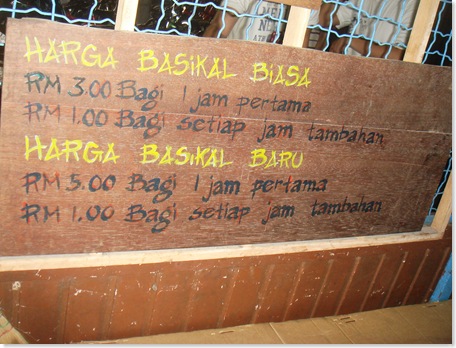 HARGA BASIKAL BIASA
RM 3.00 Bagi 1 jam pertama
RM 1.00 Bagi setiap jam tambahan
HARGA BASIKAL BARU
RM 5.00 Bagi 1 jam pertama
RM 1.00 Bagi setiap jam tambahan